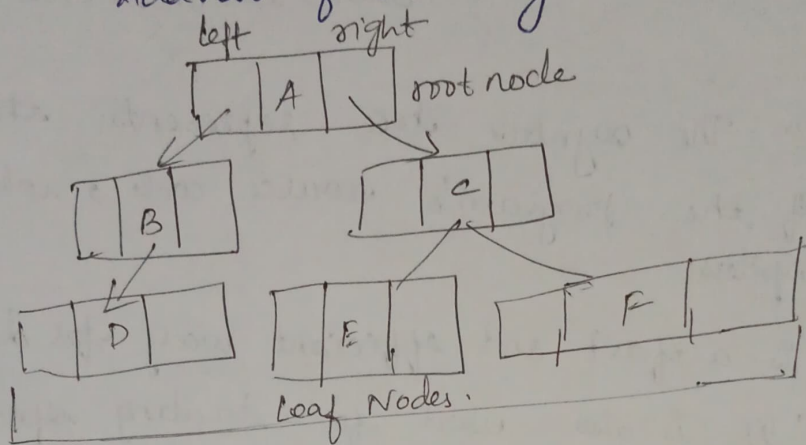 left right
A root node
B C
D E F
Leaf Nodes.